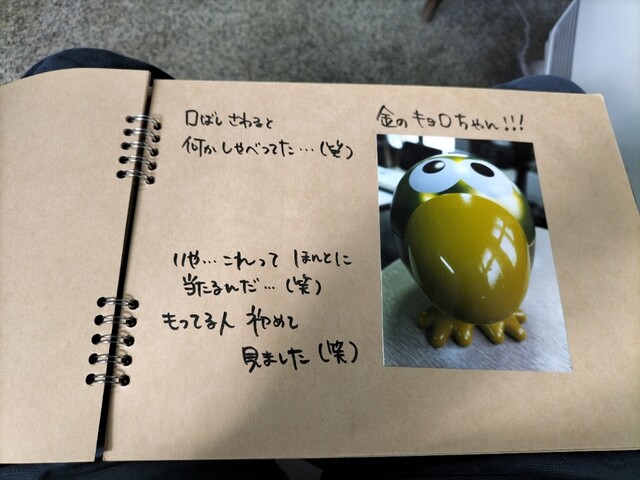 金のキョロちゃん!!!
口ばしさわると
何かしゃべってた…(笑)
いや…これって ほんとに
当たるんだ…(笑)
もってる人 初めて
見ました(笑)